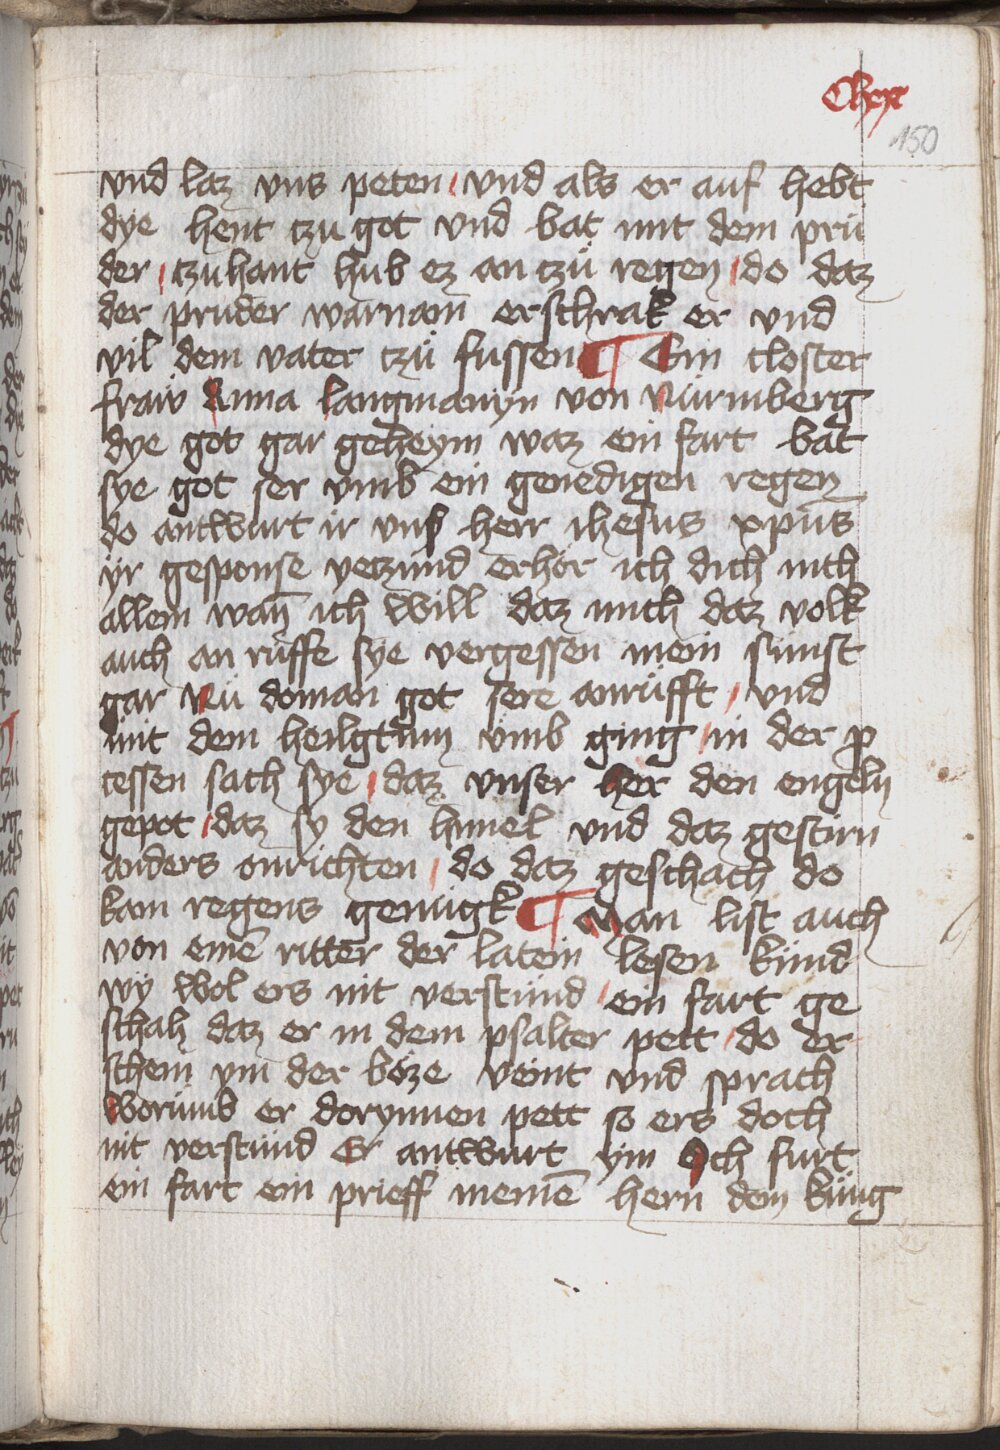 Clxx
150
vnd laz vns peten vnd als er auf hebt
dye hent tzu got vnd bat mit dem prü
der tzuhant hub ez an tzü regen do daz
der pruder warnam erschrak er vnd
vil dem vater tzü fussen Ein closter
fraw Anna langmanyn von Nürmberg
dye got gar geheym waz ein fart bat
sye got ser vmb ein genedigen regen
do antwurt ir vnser herr ihesus xpūs
yr gesponse yetzund erhör ich dich nith
allein wan̄ ich will daz mich daz volk
auch an rüffe sye vergessen mein sünst
gar Nü doman got sere anrüfft vnd
mit dem heilgtum vmb ging in der p
cessen sach sye daz vnser her den engeln
gepot daz sy den himel vnd daz gestirn
anders anrichten do daz geschach do
kam regens genugk Man list auch
von einē ritter der latein lesen kund
wy wol ers nit verstünd ein fart ge
schah daz er in dem psalter pett do er
schein ym der böze veint vnd sprach
worumb er dorynnen pett so ers doch
nit verstünd Er antwurt ym Ich furt
ein fart ein prieff meinē hern dem küng